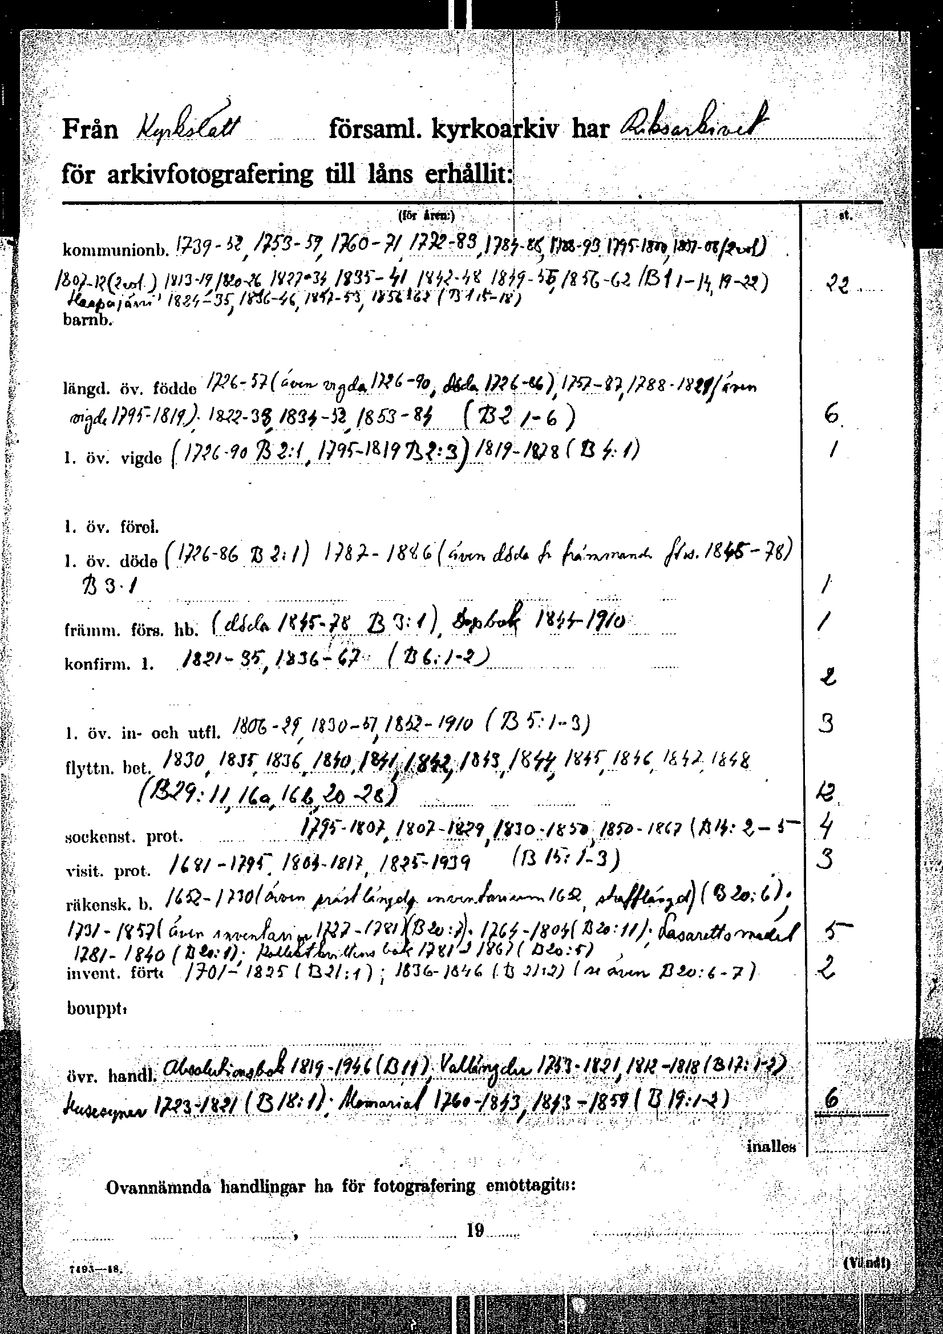 Från Kyrkslätt församl. kyrkoarkiv har Riksarkivet
för arkivfotografering till låns erhållit:
(för åren:) st.
kommunionb. 1739-52, 1753-59, 1760-71, 1772-83, 1784-88, 1788-93, 1795-1800, 1801-06 (2 vol)
1807-12 (2 vol.) 1813-19, 1820-26, 1827-34, 1835-41, 1842-48, 1849-55, 1856-62 (B1 1-14, 19-22) 22
Haapajärvi 1824-35, 1836-46, 1847-53, 1856-62 (B 1:15-18)
barnb.
längd. öv. födde 1726-57 (även vigda 1726-90, döda 1726-86), 1757-87, 1788-1821 (även
vigde 1795-1819), 1822-33, 1834-52, 1853-84 (B2 1-6) 6
l. öv. vigde (1726-90 B 2:1, 1795-1819 B 2:3) 1819-1878 (B 4:1) 1
l. öv. förel.
l. öv. döde (1726-86 B 2:1) 1787-1886 (även döda fr främmande förs. 1845-78)
B 3:1 1
främm. förs. hb. (döda 1845-78 B 3:1), Dopbok 1844-1910 1
konfirm. l. 1821-35, 1836-67 (B 6:1-2)
2
l. öv. in- och utfl. 1806-29, 1830-51, 1852-1910 (B 5:1-3) 3
flyttn. bet. 1830, 1835, 1836, 1840, 1841, 1842, 1843, 1844, 1845, 1846, 1847, 1848
(B29: 11, 16a, 16b, 20-28) 12
sockenst. prot. 1795-1807, 1807-1829, 1830-1850, 1850-1867 (B14: 2-5 4
visit. prot. 1681-1795, 1804-1817, 1825-1939 (B 15: 1-3) 3
räkensk. b. 1652-1730 (även prästlängd, inventarium 1652, strafflängd) (B 20:6);
1731-1857 (även inventarium 1727-1781) (B20:7); 1764-1804 (B20:11); Lasarettsmedel 5
1781-1840 (B20:1); Kollekt 1781-1867 (B20:5)
invent. fört: 1701-1825 (B21:1); 1836-1846 (B 21:2) (se även B20:6-7) 2
bouppt:
övr. handl. Absolutionsbok 1819-1946 (B11); Vallängder 1753-1821, 1812-1818 (B17: 1-2)
Husesyner 1723-1821 (B 18:1); Memorial 1760-1843, 1843-1859 (B 19:1-2) 6
inalles
Ovannämnda handlingar ha för fotografering emottagits:
, 19
7493—48. (Vändl)